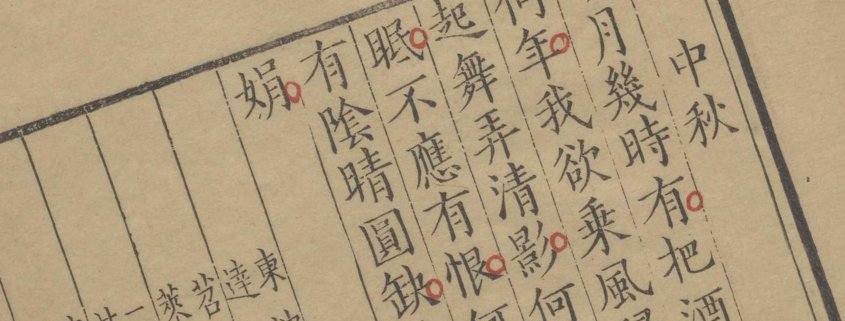 中秋
月幾時有把酒
何年我欲乘風
起舞弄清影何
眠不應有恨何
有陰晴圓缺
娟
東
達